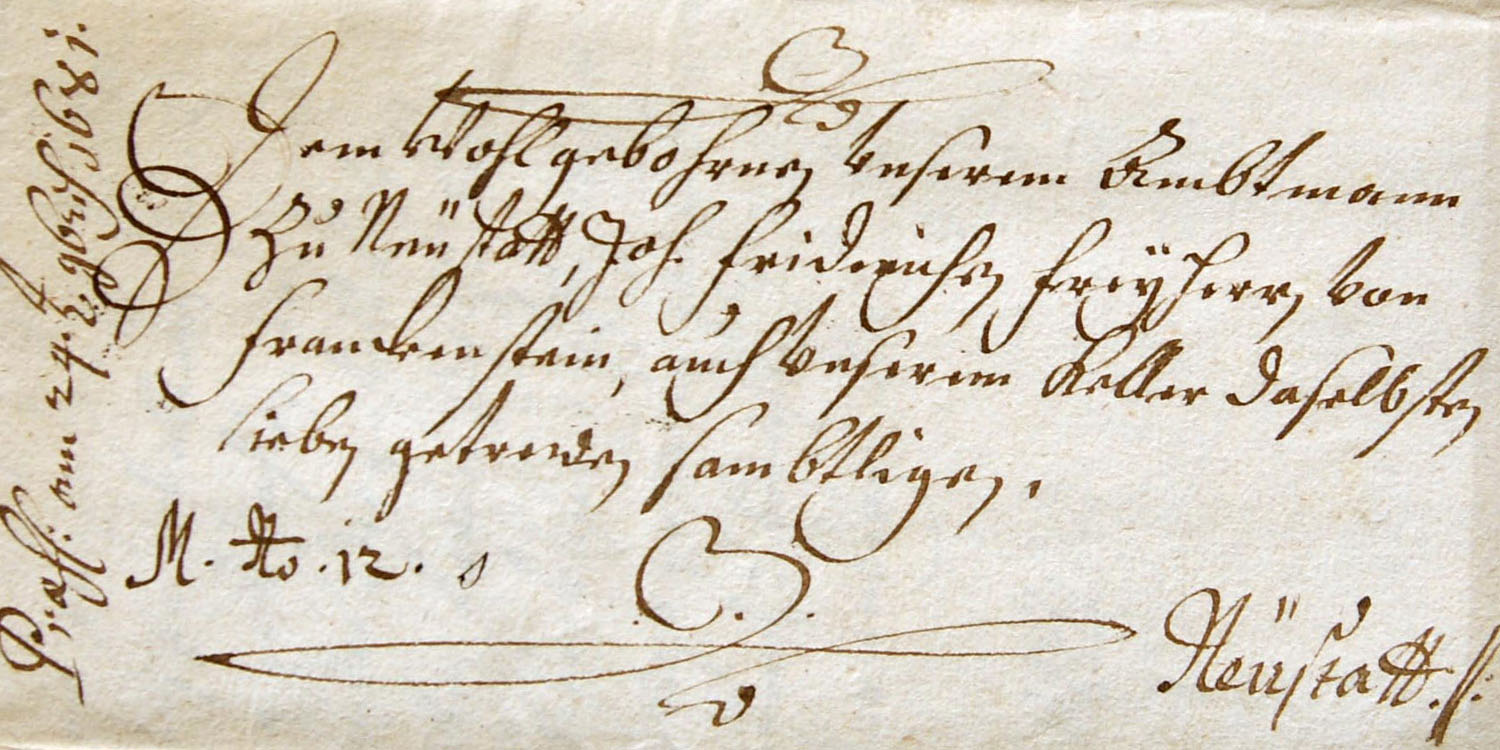 Dem Wohlgebohrnen Unserem Ambtmann
Zu Neüstatt, Joh. Friderichen Freÿherrn von
Franckenstein, auch Unserem Keller daselbsten
Lieben getrewen sambtligen.
M. No. 12.
Neüstatt.
Præss: am 24 t. 9brisch 1681.